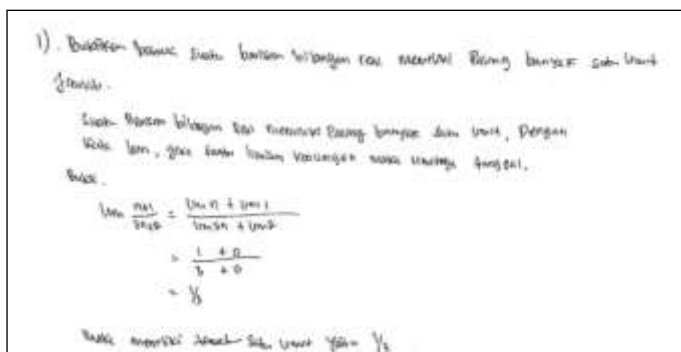 1). Buktikan bahwa suatu barisan bilangan real memiliki Paling banyak satu limit
Suatu Barisan bilangan Real memiliki Paling banyak satu limit, Dengan
kata lain, jika suatu barisan konvergen maka limitnya tunggal.
Bukti.
= 1 + 0 / 3 + 0
= 1/3
Maka memiliki satu limit yaitu 1/3